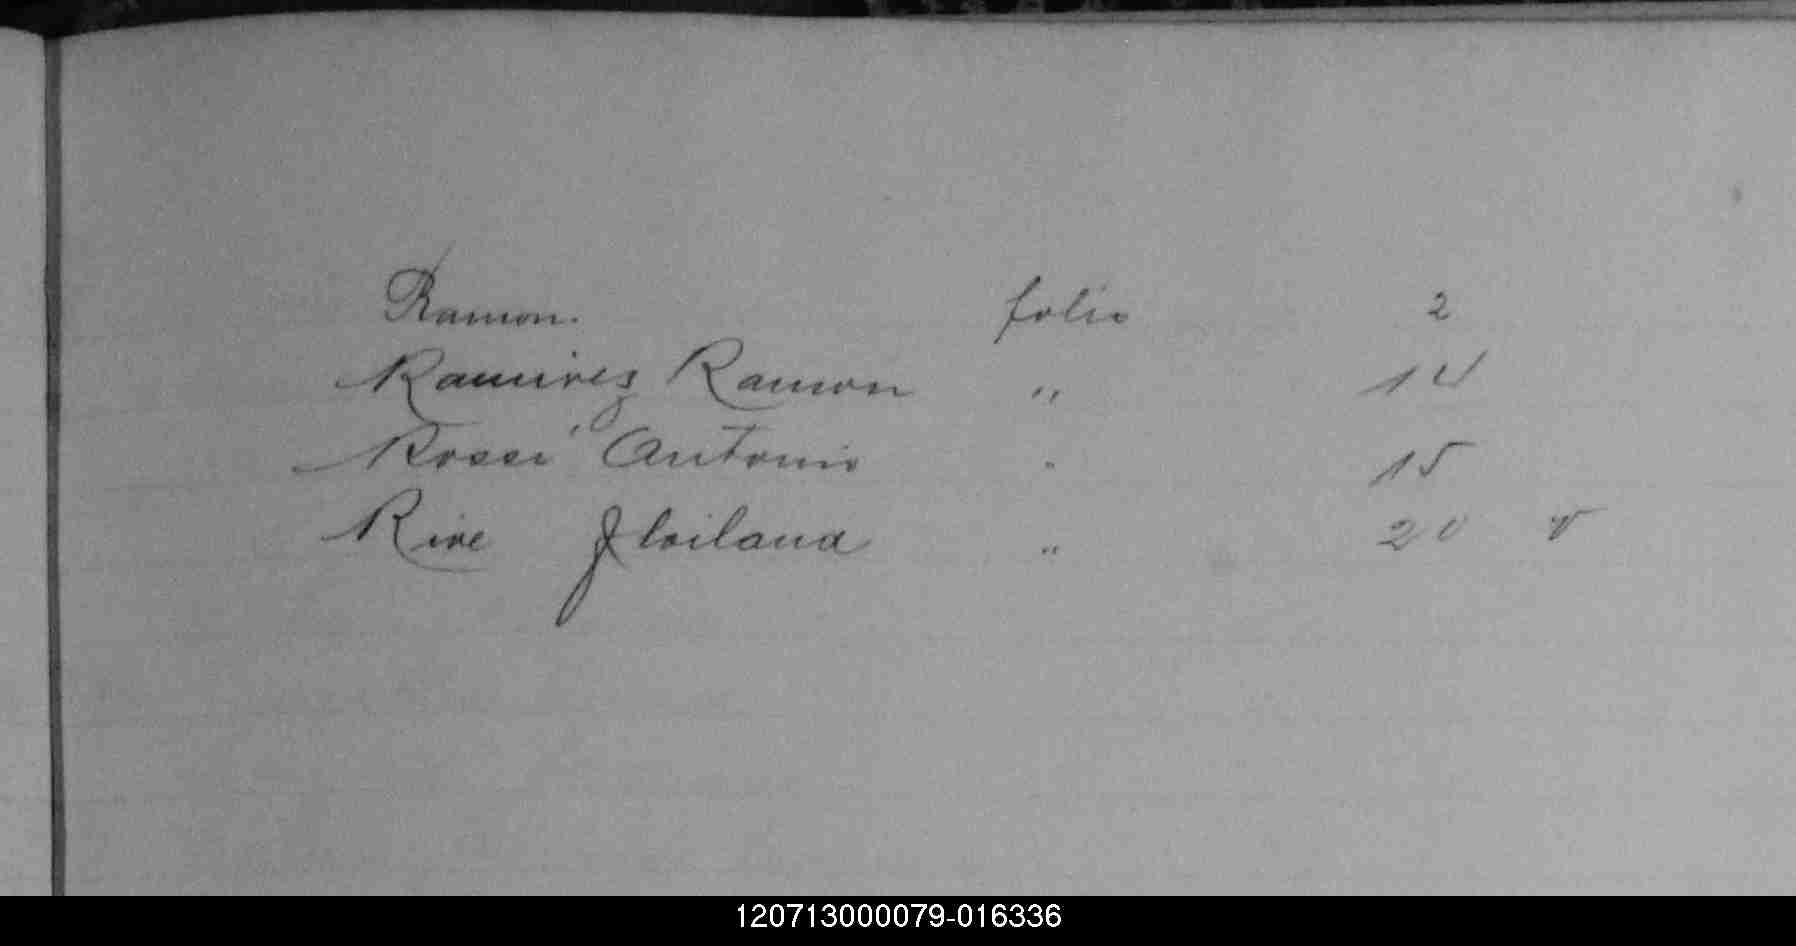 Ramon. folio 2
Ramirez Ramon " 14
Rossi Antonio " 15
Rive " 20 v
120713000079-016336